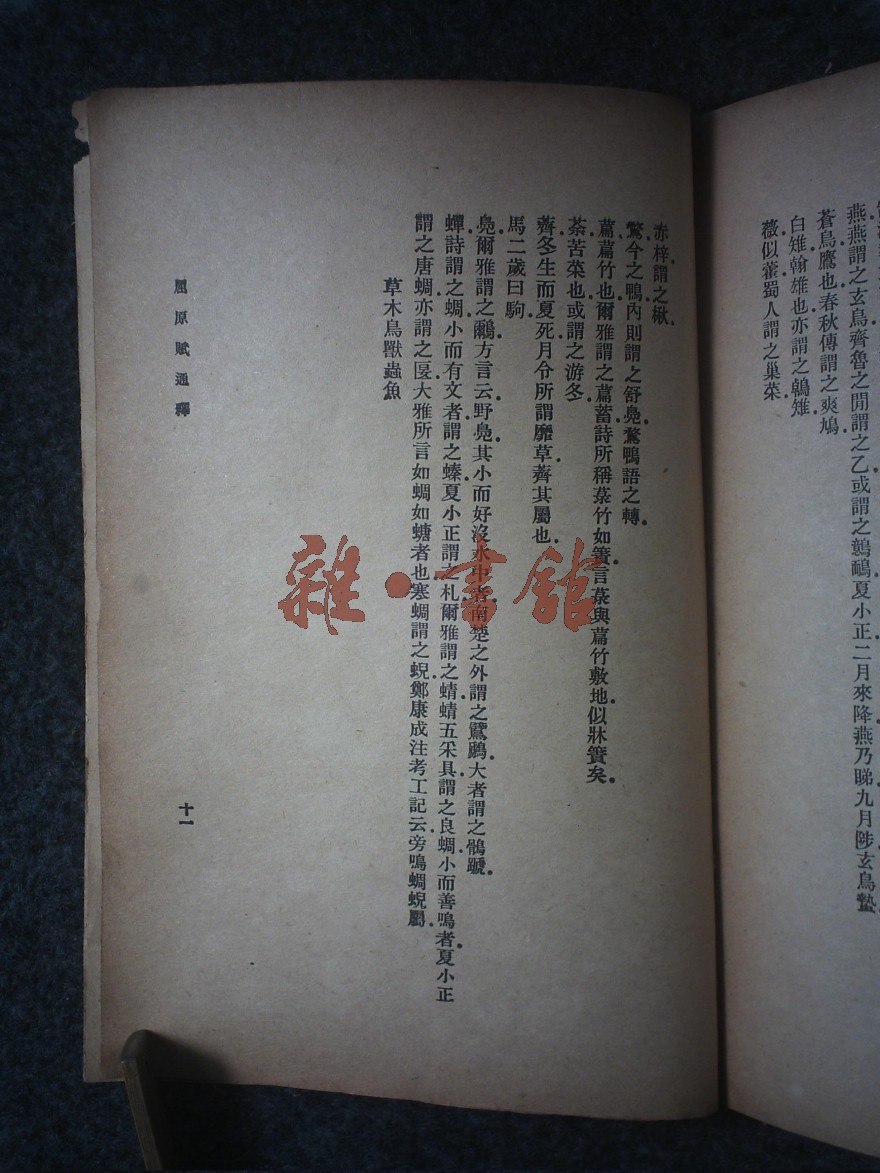 燕燕謂之玄鳥齊魯之閒謂之乙或謂之鷾鴯夏小正二月來降燕乃睇九月陟玄鳥蟄
蒼鳥鷹也春秋傳謂之爽鳩
白雉翰雄也亦謂之鵫雉
薇似藿蜀人謂之巢菜
赤梓謂之楸
鶩今之鴨內則謂之舒鳧鶩鴨語之轉
萹萹竹也爾雅謂之萹蓄詩所稱菉竹如簀言菉與萹竹敷地似牀簀矣
荼苦菜也或謂之游冬
薺冬生而夏死月令所謂靡草薺其屬也
馬二歲曰駒
鳧爾雅謂之鸍方言云野鳧其小而好沒水中者南楚之外謂之鷿鷉大者謂之鶻蹏
蟬詩謂之蜩小而有文者謂之螓夏小正謂之札爾雅謂之蜻蜻五采具謂之良蜩小而善鳴者夏小正
謂之唐蜩亦謂之匽大雅所言如蜩如螗者也寒蜩謂之蜺鄭康成注考工記云旁鳴蜩蜺屬
草木鳥獸蟲魚
屈原賦通釋
十一
雜·書館